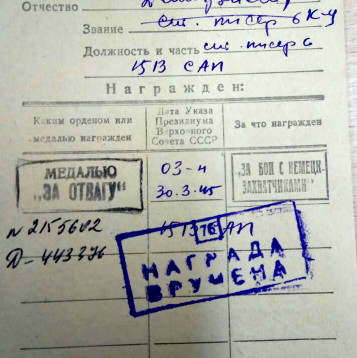 Отчество
Звание
Должность и часть ст. писер
1513 САП
Награжден:
Каким орденом или медалью награжден
Дата Указа Президиума Верховного Совета СССР
За что награжден
МЕДАЛЬЮ
"ЗА ОТВАГУ"
03-н
30.3.45
"ЗА БОИ С НЕМЕЦК.
ЗАХВАТЧИКАМИ"
№ 2155602
Д-443376
1513 САП
НАГРАДА
ВРУЧЕНА